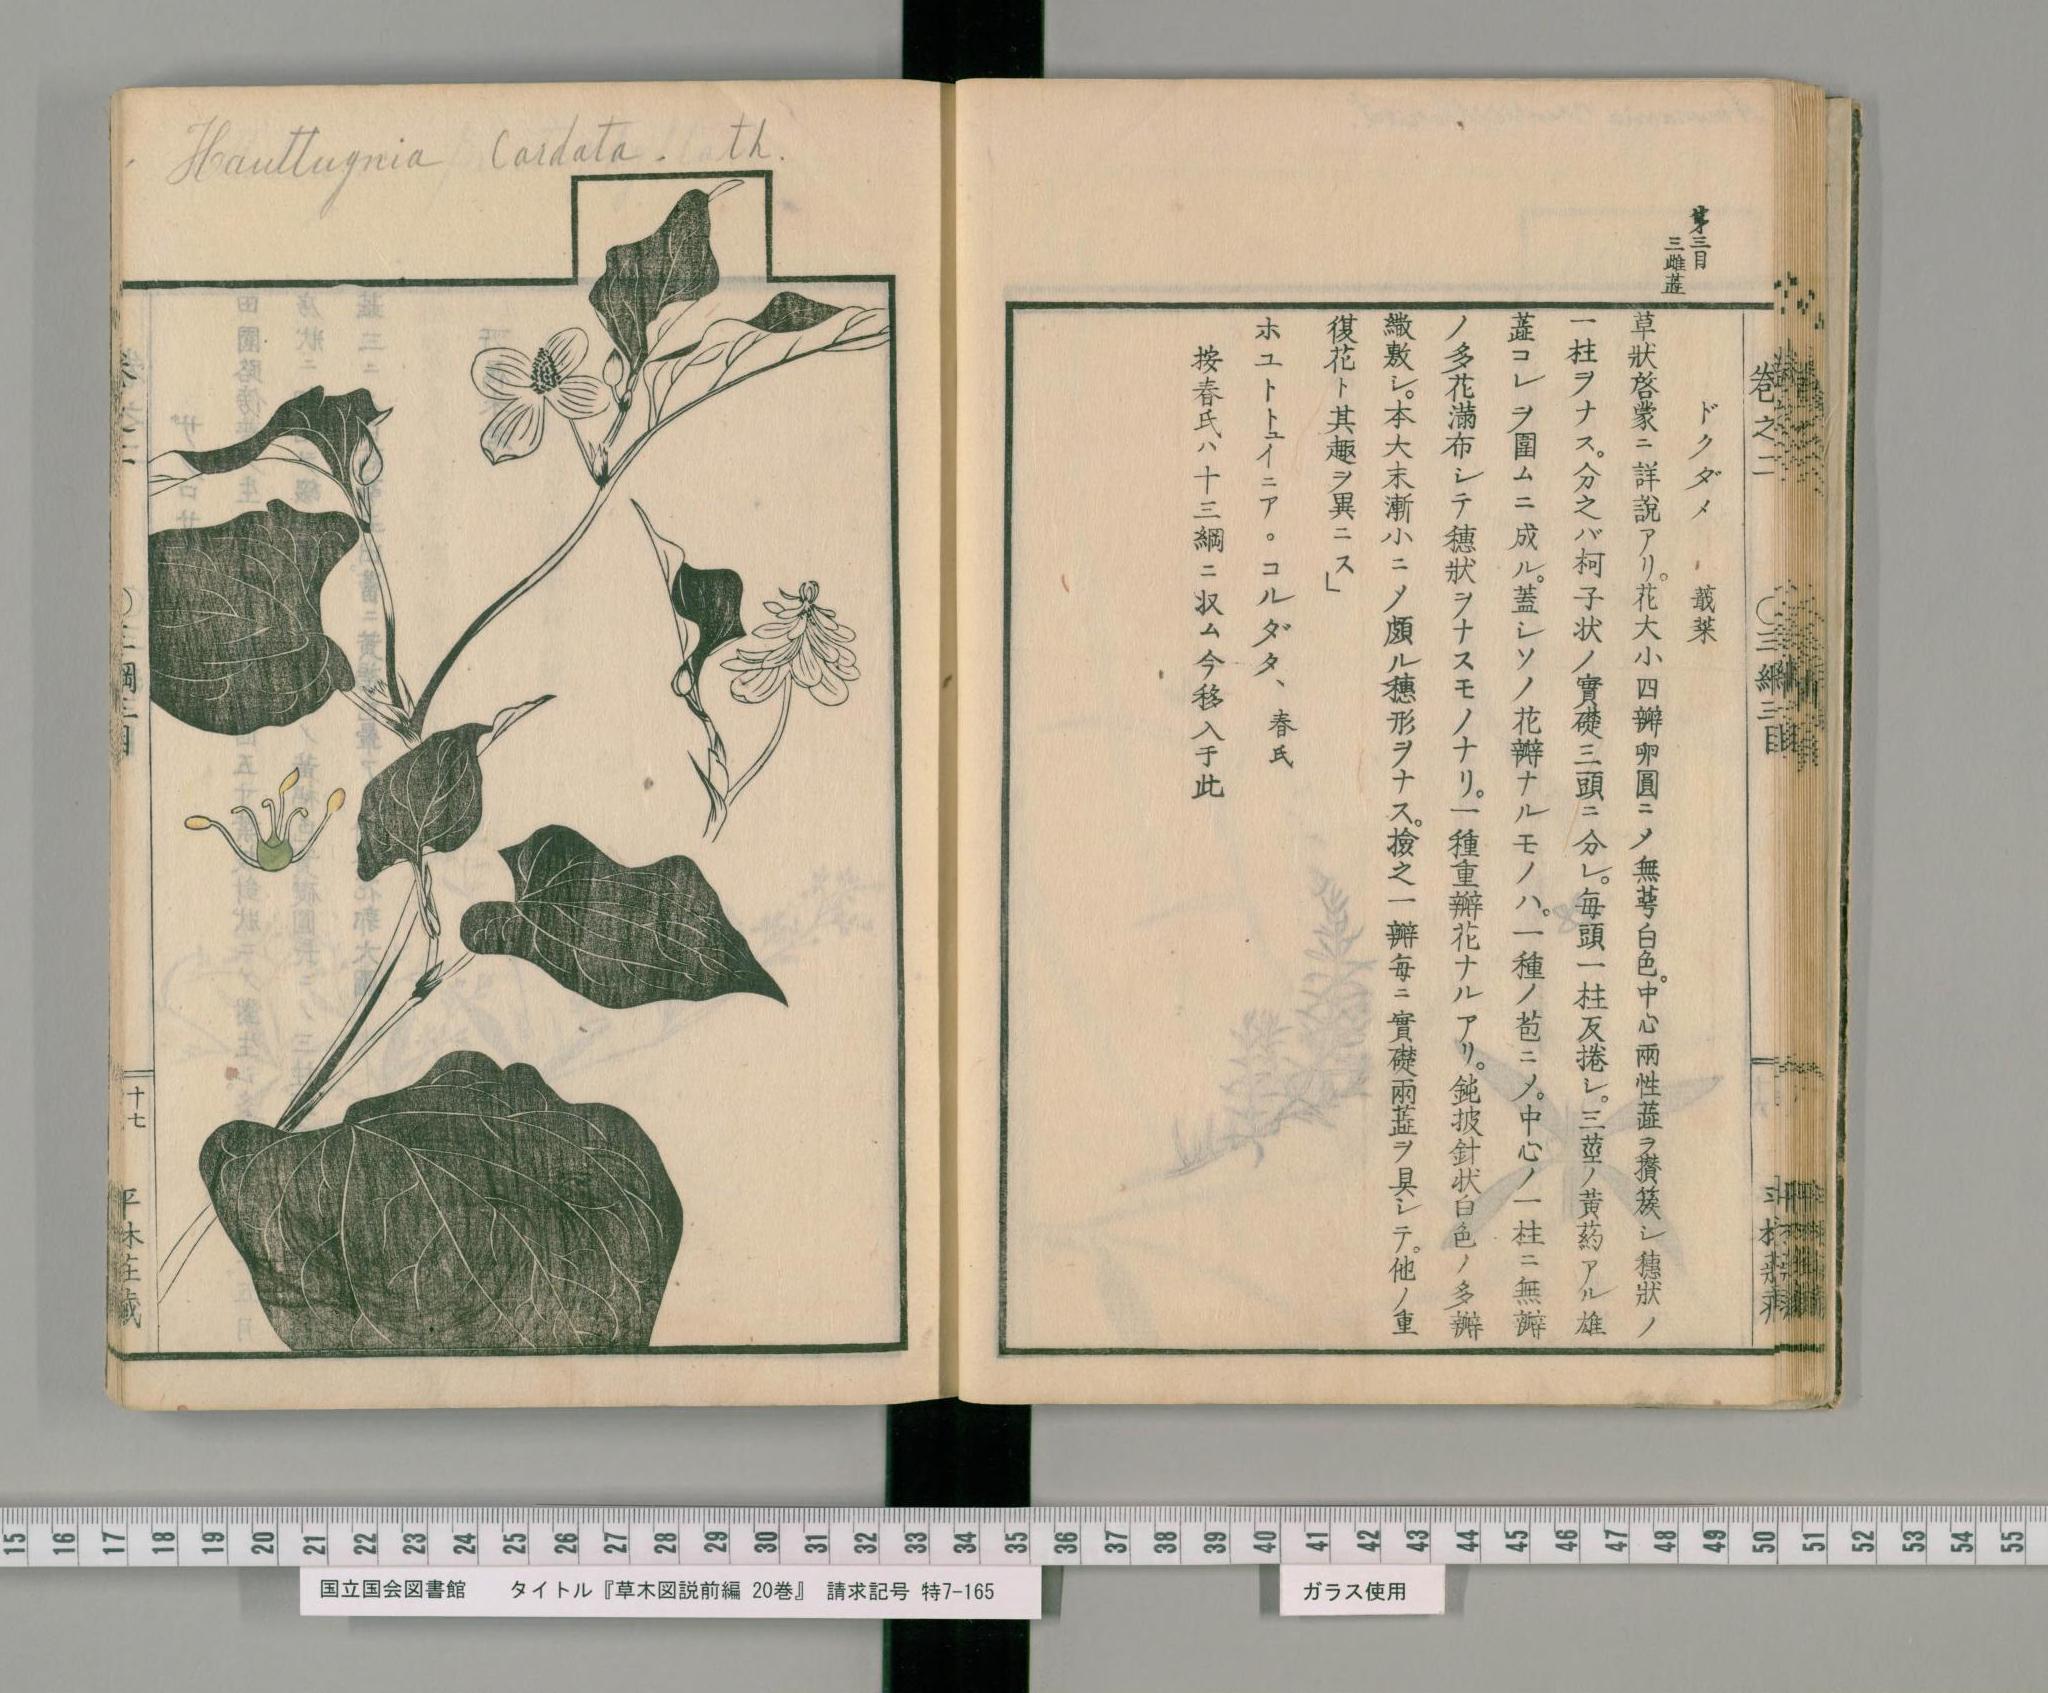 第三目
三雌蘂
巻之二
〇三綱三目
ドクダメ 蕺菜
草狀啓蒙ニ詳說アリ。花大小四瓣卵圓ニメ無萼白色。中心兩性蘂ヲ攅簇シ穗狀ノ
一柱ヲナス。分之バ柯子状ノ實礎三頭ニ分レ。毎頭一柱反捲シ。三莖ノ黃葯アル雄
蘂コレヲ圍ムニ成ル。蓋シソノ花瓣ナルモノハ。一種ノ苞ニメ。中心ノ一柱ニ無瓣
ノ多花滿布シテ穗狀ヲナスモノナリ。一種重瓣花ナルアリ。鈍披針状白色ノ多瓣
繖敷シ。本大末漸小ニメ頗ル穗形ヲナス。撿之一瓣毎ニ實礎兩蘂ヲ具シテ。他ノ重
復花ト其趣ヲ異ニス」
ホユトトュイニア。コルダタ、春氏
按春氏ハ十三綱ニ収ム今移入于此
Hauttugnia Cordata. th.
三綱三目
十七
平林荘蔵
国立国会図書館 タイトル『草木図説前編 20巻』 請求記号 特7-165
ガラス使用
15 16 17 18 19 20 21 22 23 24 25 26 27 28 29 30 31 32 33 34 35 36 37 38 39 40 41 42 43 44 45 46 47 48 49 50 51 52 53 54 55